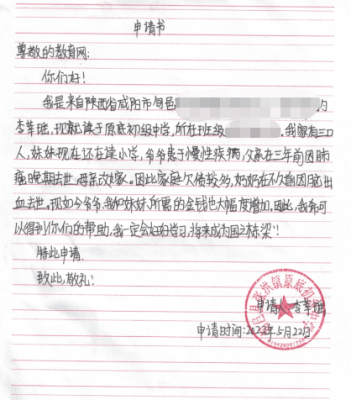 申请书
尊敬的教育网:
你们好!
我是来自陕西省咸阳市旬邑 的
李 现就读于原底初级中学,所在班级 。我家有三口
人,妹妹现在还在读小学,爷爷属于慢性疾病,父亲在三年前因肺
癌晚期去世,母亲改嫁。因此家庭欠债较多,奶奶在不久前因脑出
血去世。现如今爷爷,我和妹妹所需的金钱也大幅度增加。因此,我希可
以得到你们的帮助,我一定会好好学习,将来成为国之栋梁!
特此申请。
致此,敬礼!
申请 李
申请时间:2022年5月22日